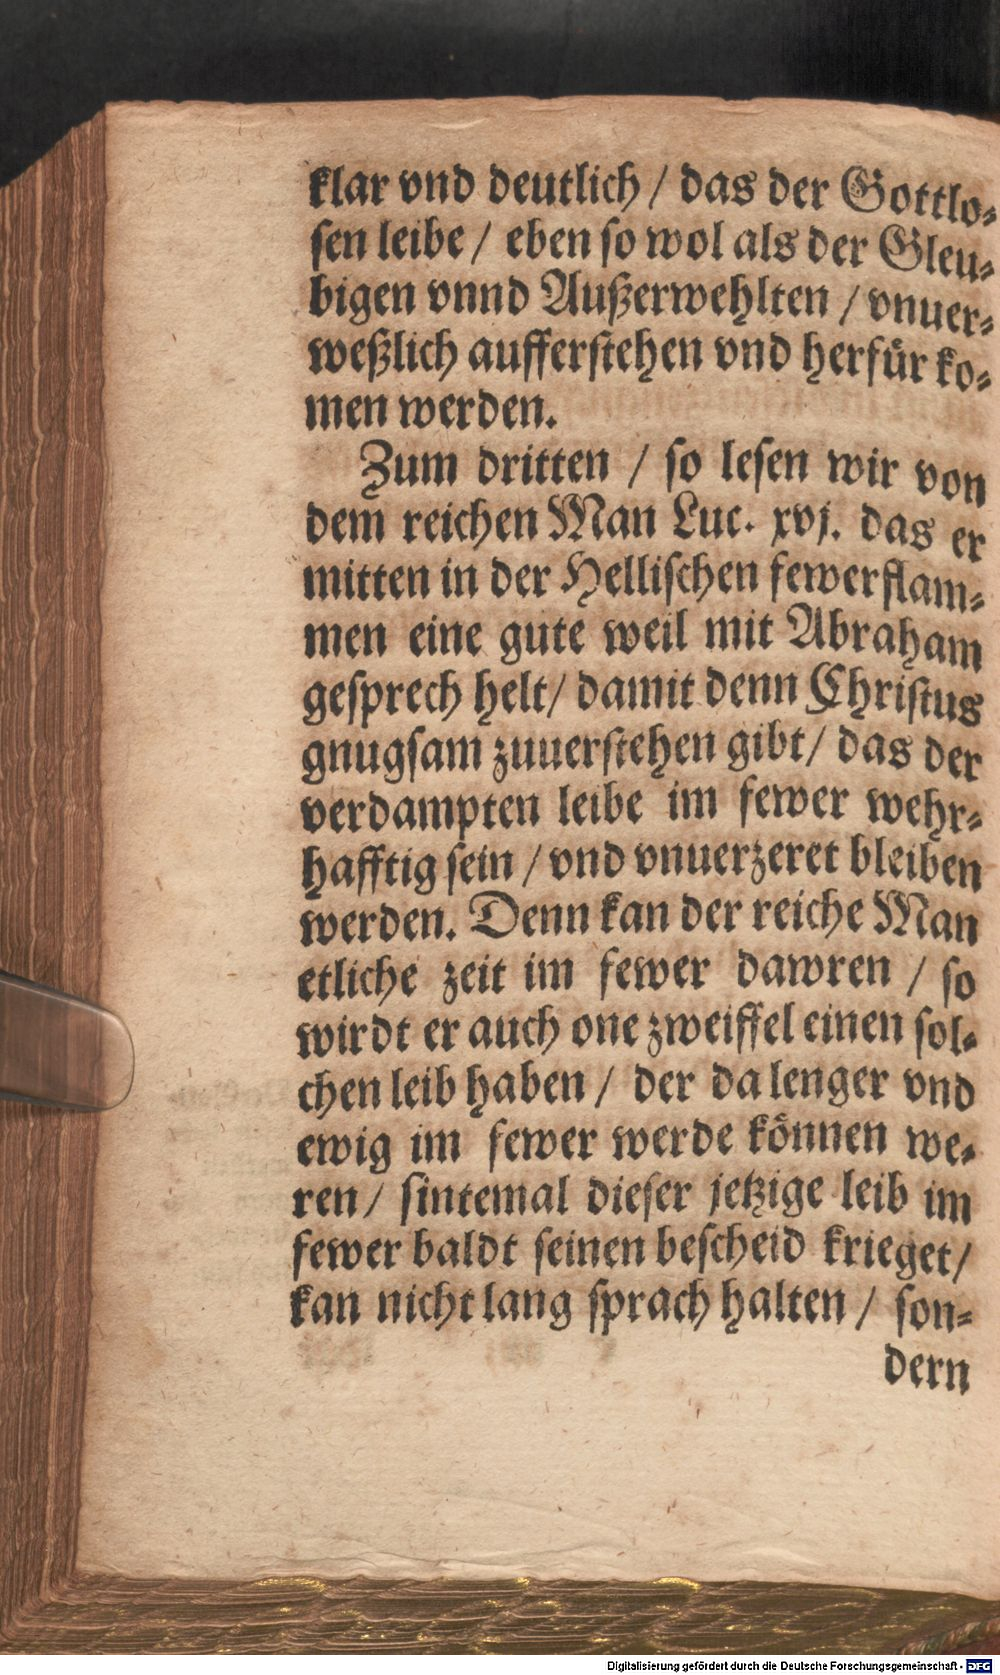 klar vnd deutlich / das der Gottlo-
sen leibe / eben so wol als der Gleu-
bigen vnnd Außerwehlten / vnuer-
weßlich aufferstehen vnd herfür ko-
men werden.
Zum dritten / so lesen wir von
dem reichen Man Luc. xvj. das er
mitten in der Hellischen fewerflam-
men eine gute weil mit Abraham
gesprech helt / damit denn Christus
gnugsam zuuerstehen gibt / das der
verdampten leibe im fewer wehr-
hafftig sein / vnd vnuerzeret bleiben
werden. Denn kan der reiche Man
etliche zeit im fewer dawren / so
wirdt er auch one zweiffel einen sol-
chen leib haben / der da lenger vnd
ewig im fewer werde können we-
ren / sintemal dieser jetzige leib im
fewer baldt seinen bescheid krieget /
kan nicht lang sprach halten / son-
dern
Digitalisierung gefördert durch die Deutsche Forschungsgemeinschaft - DFG